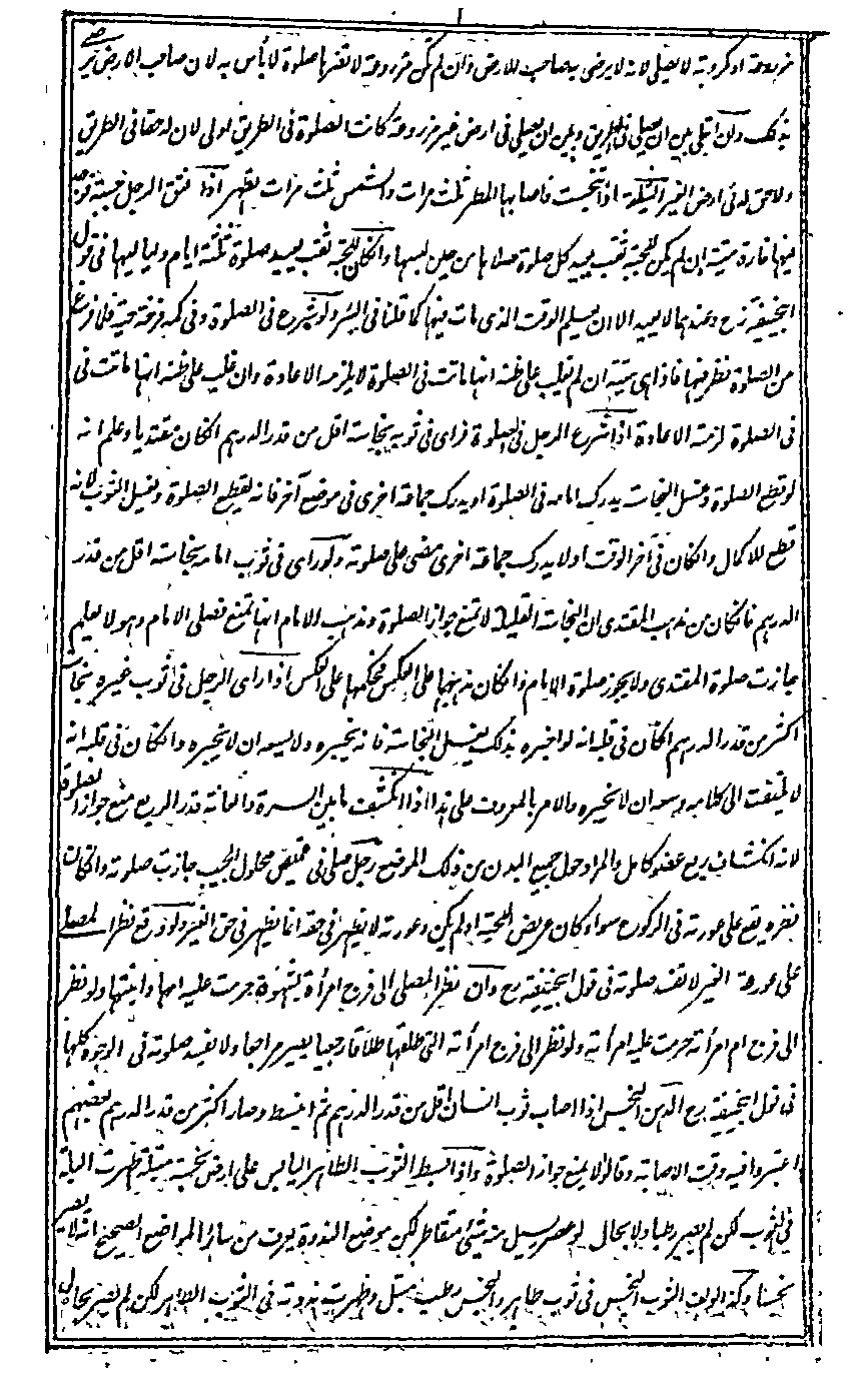 مزروعة او كروبة لا يصلي لانه لا يرضى به صاحب الارض وان لم يكن مزروعة لا تضرها صلوة لا بأس به لان صاحب الارض يرضى
بذلك وان ابتلي بين ان يصلي في الطريق وبين ان يصلي في ارض غير مزروعة كانت الصلوة في الطريق اولى لان له حقا في الطريق
ولا حق له في ارض الغير اذا تنجست فاصابها المطر ثلث مرات والشمس ثلث مرات يطهر اذا فتق الرجل جبته فوجد
فيها فارة ميتة ان لم يكن للجبة ثقب يعيد كل صلوة صلاها من حين لبسها وانكان للجبة ثقب يعيد صلوة ثلثة ايام ولياليها في قول
ابيحنيفة رح وعندهما لا يعيد الا ان يعلم الوقت الذى مات فيها كما قلنا في البئر ولو شرع في الصلوة وفي كمه فرخة حية فلما فرغ
من الصلوة نظر فيها فاذا هي ميتة ان لم يغلب على ظنه انها ماتت في الصلوة لا يلزمه الاعادة وان غلب على ظنه انها ماتت في
في الصلوة لزمته الاعادة اذا شرع الرجل في الصلوة فراى في ثوبه نجاسة اقل من قدر الدرهم انكان مقتديا وعلم انه
لو قطع الصلوة وغسل النجاسة يدرك امامه في الصلوة او يدرك جماعة اخرى في موضع آخر فانه يقطع الصلوة ويغسل الثوب لانه
قطع للاكمال وانكان في آخر الوقت او لا يدرك جماعة اخرى مضى على صلوته ولو راى في ثوب امامه نجاسة اقل من قدر
الدرهم فانكان من مذهب المقتدى ان النجاسة القليلة لا تمنع جواز الصلوة ومذهب الامام انها تمنع فصلى الامام وهو لا يعلم
جازت صلوة المقتدى ولا يجوز صلوة الامام وانكان مذهبهما على العكس فحكمهما على العكس اذا راى الرجل في ثوب غيره نجاسة
اكثر من قدر الدرهم انكان في قلبه انه لو اخبره بذلك يغسل النجاسة فانه يخبره ولا يسعه ان لا يخبره وانكان في قلبه انه
لا يلتفت الى كلامه وسعه ان لا يخبره والامر بالمعروف على هذا اذا انكشفت ما بين السرة والعانة قدر الربع منع جواز الصلوة
لانه انكشاف ربع عضو كامل والمراد حول جميع البدن من ذلك الموضع رجل صلى في قميص محلول الجيب جازت صلوته وانكان
بصره يقع على عورته في الركوع سواء كان عريض اللحية او لم يكن وعورته لا يظهر في حقه انما يظهر في حق الغير ولو وقع نظر المصلى
على عورة الغير لا تفسد صلوته في قول ابيحنيفة رح وان نظر المصلى الى فرج امرأة بشهوة حرمت عليه امها وابنتها ولو نظر
الى فرج ام امرأته حرمت عليه امرأته ولو نظر الى فرج امرأته التى طلقها طلاقا رجعيا يصير مراجعا ولا يفسد صلوته في الوجوه كلها
في قول ابيحنيفة رح الدهن النجس اذا اصاب ثوب انسان اقل من قدر الدرهم ثم انبسط وصار اكثر من قدر الدرهم بعضهم
اعتبروا فيه وقت الاصابة وقالوا لا يمنع جواز الصلوة واذا بسط الثوب الطاهر اليابس على ارض نجسة مبتلة فظهرت البلة
في الثوب لكن لم يصر رطبا ولا بحال لو عصر يسيل منه شئ متقاطر لكن موضع الندوة يعرف من سائر المواضع الصحيح انه لا يصير
نجسا وكذا لو لف الثوب النجس في ثوب طاهر والنجس رطب مبتل وظهرت ندوته في الثوب الطاهر لكن لم يصر بحال